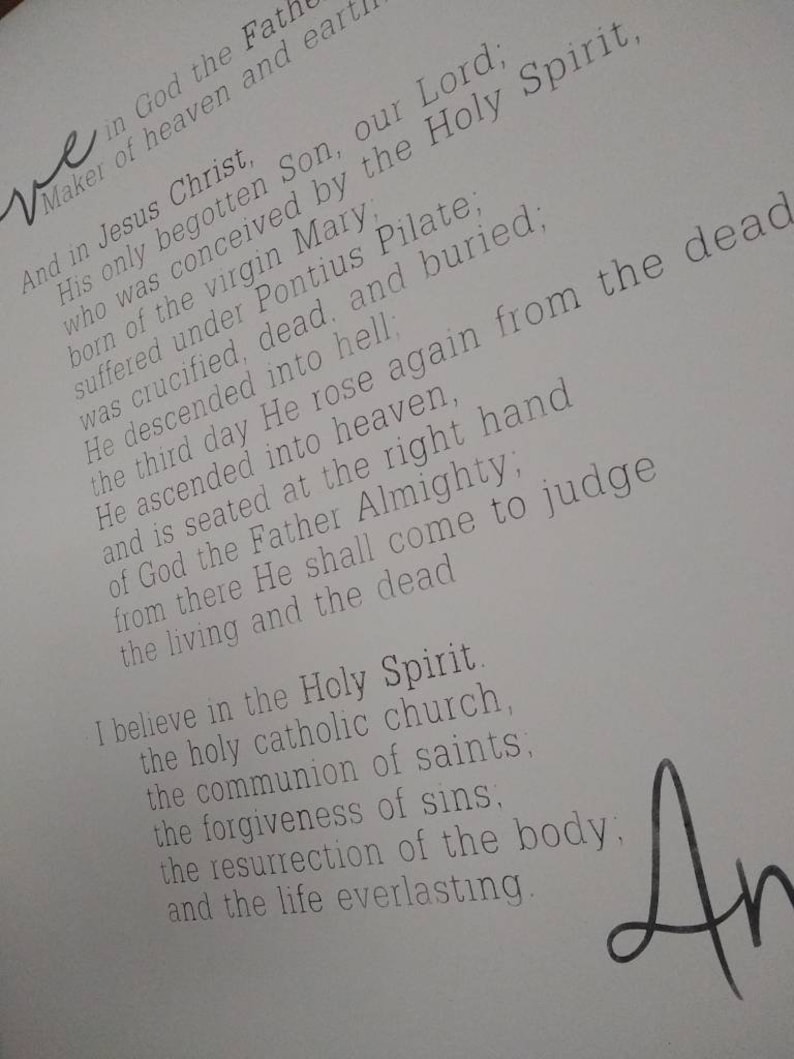 ve in God the Fathe
Maker of heaven and earth
And in Jesus Christ,
His only begotten Son, our Lord;
who was conceived by the Holy Spirit,
born of the virgin Mary;
suffered under Pontius Pilate;
was crucified, dead, and buried;
He descended into hell;
the third day He rose again from the dead
He ascended into heaven,
and is seated at the right hand
of God the Father Almighty;
from there He shall come to judge
the living and the dead
I believe in the Holy Spirit.
the holy catholic church,
the communion of saints;
the forgiveness of sins;
the resurrection of the body;
and the life everlasting.
Am